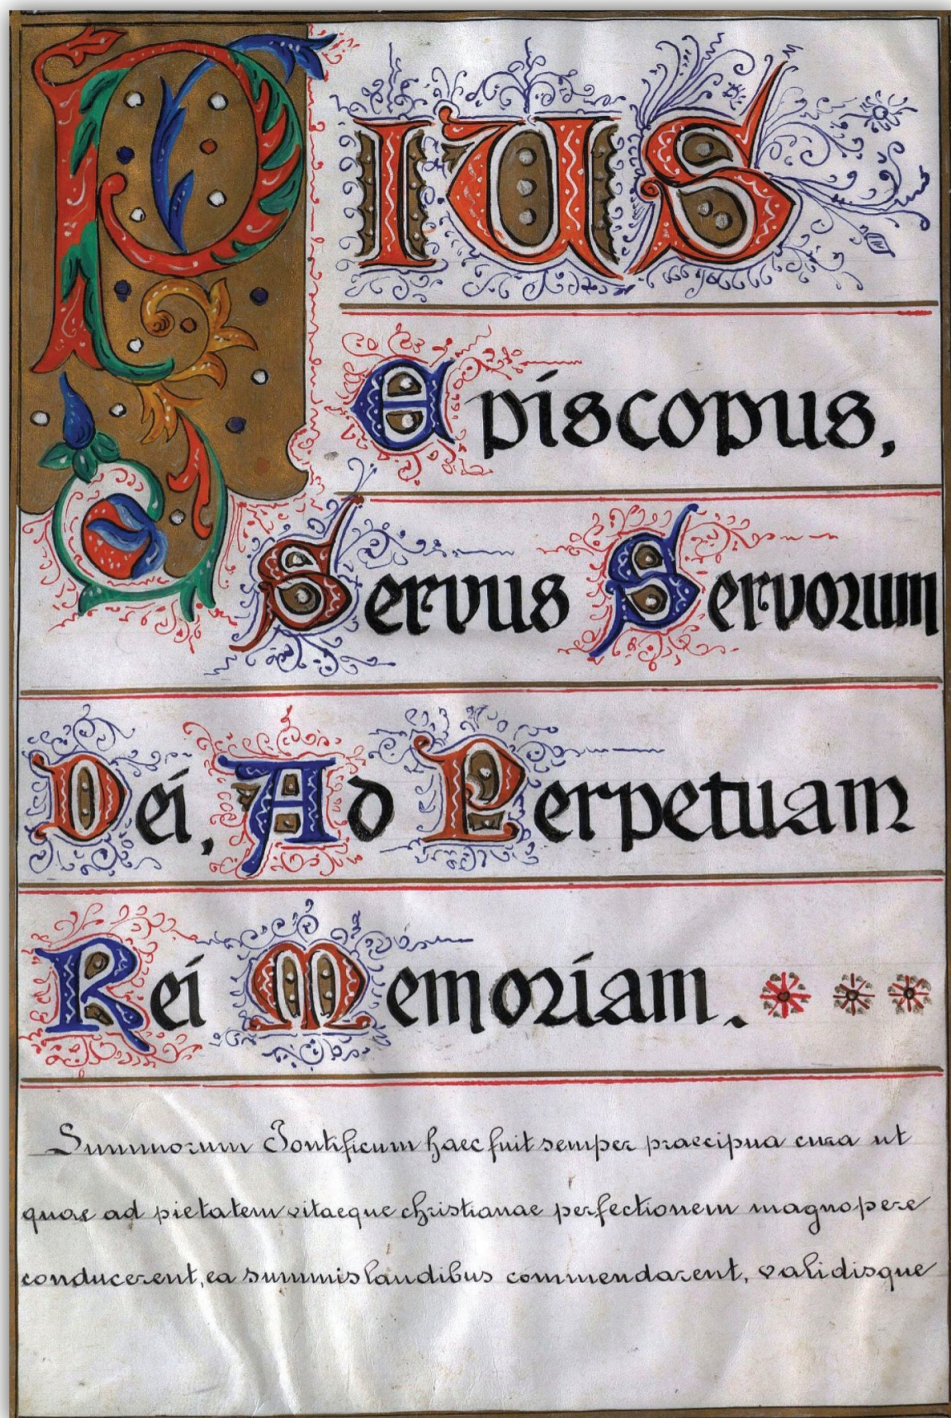 Pius
Episcopus,
Servus Servorum
Dei, Ad Perpetuam
Rei Memoriam.
Summorum Pontificum haec fuit semper praecipua cura ut
quae ad pietatem vitaeque christianae perfectionem magnopere
conducerent, ea summis laudibus commendarent, validisque